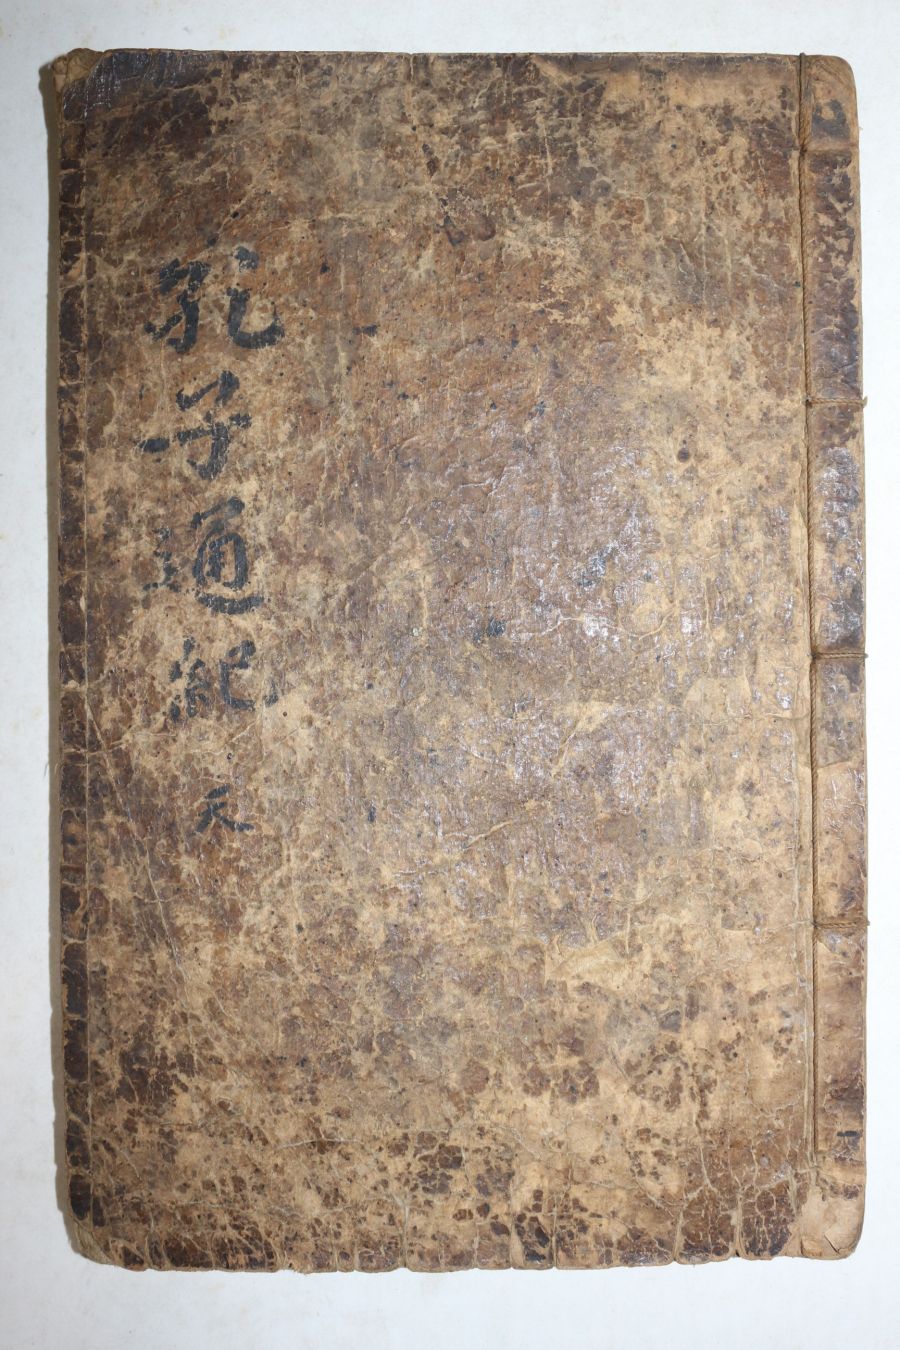 孔子通紀 天